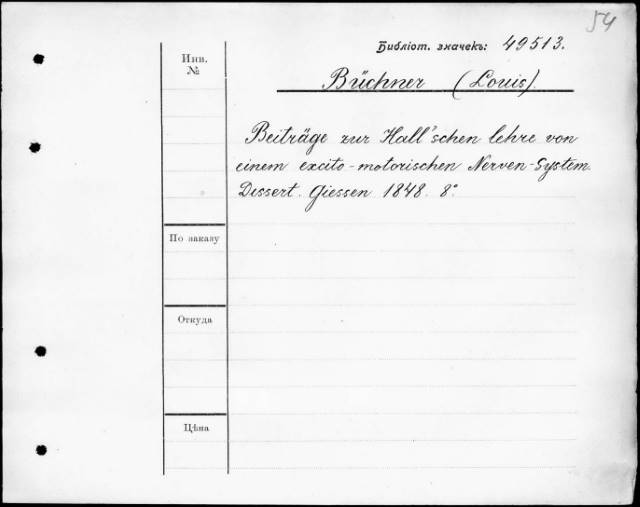 54
Библіот. значекъ: 49513.
Инв.
№
Büchner (Louis).
Beiträge zur Hall'schen lehre von
einem excito-motorischen Nerven-System.
Dissert. Giessen 1848. 8°
По заказу
Откуда
Цѣна